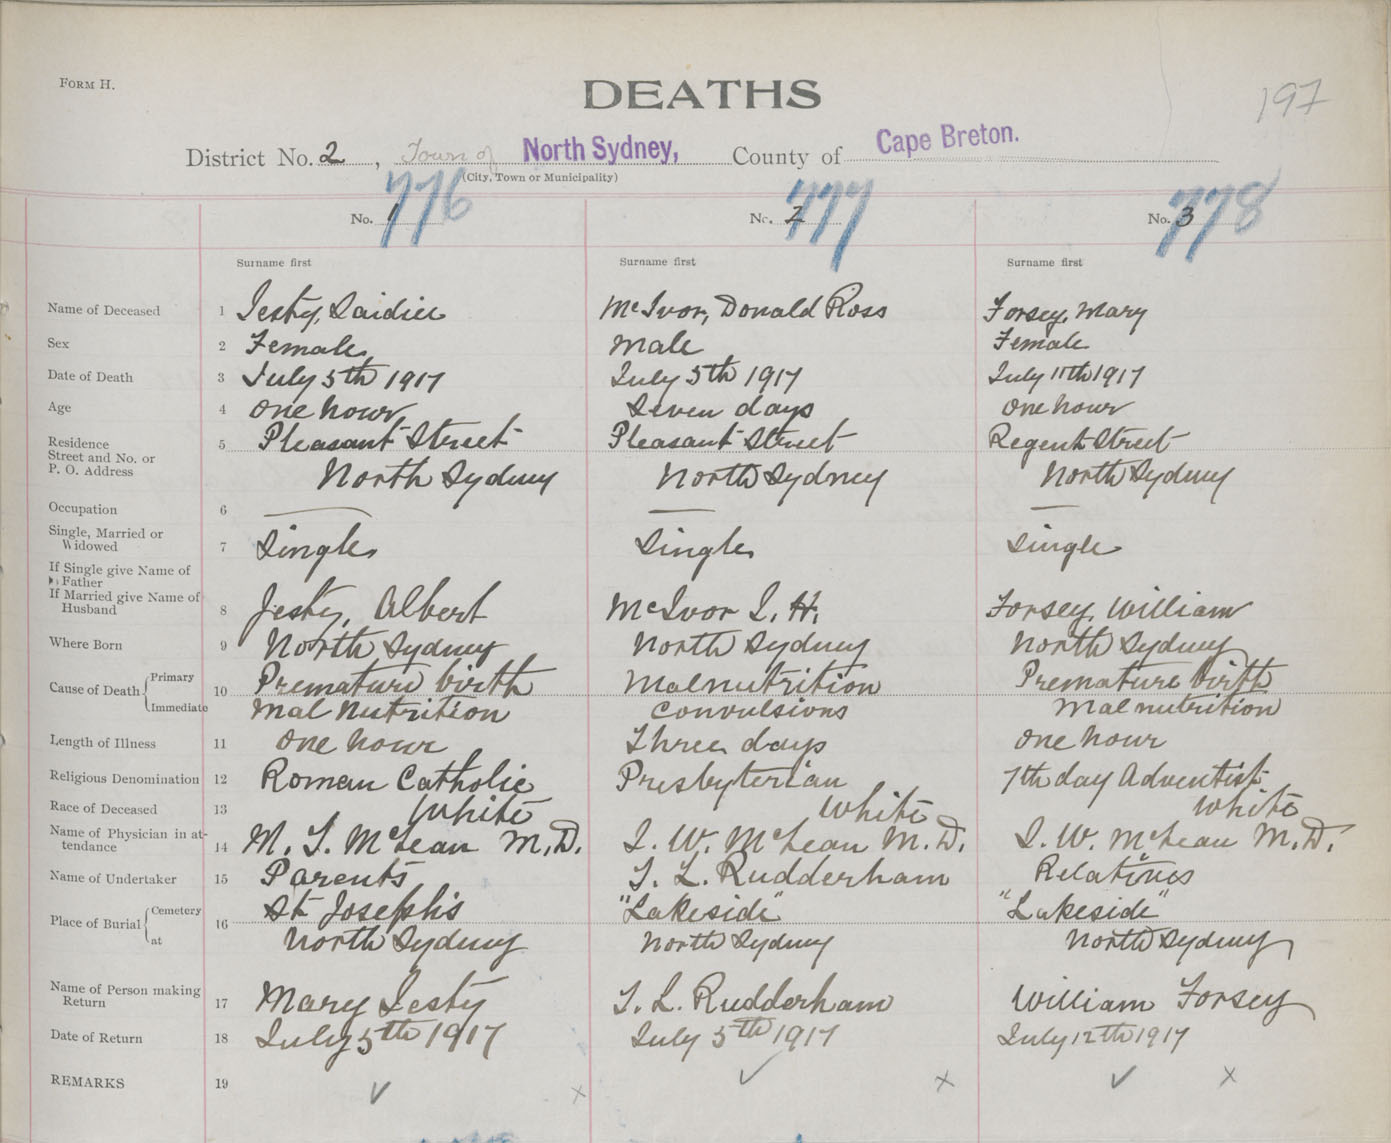 FORM H.
DEATHS
197
District No. 2, Town of North Sydney, County of Cape Breton.
(City, Town or Municipality)
776 777 778
No. 1 No. 2 No. 3
Surname first Surname first Surname first
Name of Deceased 1 Jesty, Saidie McIvor, Donald Ross Forsey, Mary
Sex 2 Female Male Female
Date of Death 3 July 5th 1917 July 5th 1917 July 11th 1917
Age 4 One hour Seven days One hour
Residence 5 Pleasant Street Pleasant Street Regent Street
Street and No. or
P. O. Address North Sydney North Sydney North Sydney
Occupation 6 — — —
Single, Married or
Widowed 7 Single Single Single
If Single give Name of
Father
If Married give Name of
Husband 8 Jesty, Albert McIvor J. H. Forsey, William
Where Born 9 North Sydney North Sydney North Sydney
Cause of Death { Primary 10 Premature birth Malnutrition Premature birth
Immediate Mal Nutrition Convulsions Malnutrition
Length of Illness 11 One hour Three days One hour
Religious Denomination 12 Roman Catholic Presbyterian 7th day Adventist
Race of Deceased 13 White White White
Name of Physician in at-
tendance 14 M. T. McLean M.D. J. W. McLean M.D. J. W. McLean M.D.
Name of Undertaker 15 Parents T. L. Rudderham Relatives
Place of Burial { Cemetery 16 St Joseph's "Lakeside" "Lakeside"
at North Sydney North Sydney North Sydney
Name of Person making
Return 17 Mary Jesty T. L. Rudderham William Forsey
Date of Return 18 July 5th 1917 July 5th 1917 July 12th 1917
REMARKS 19 ✓ x ✓ x ✓ x